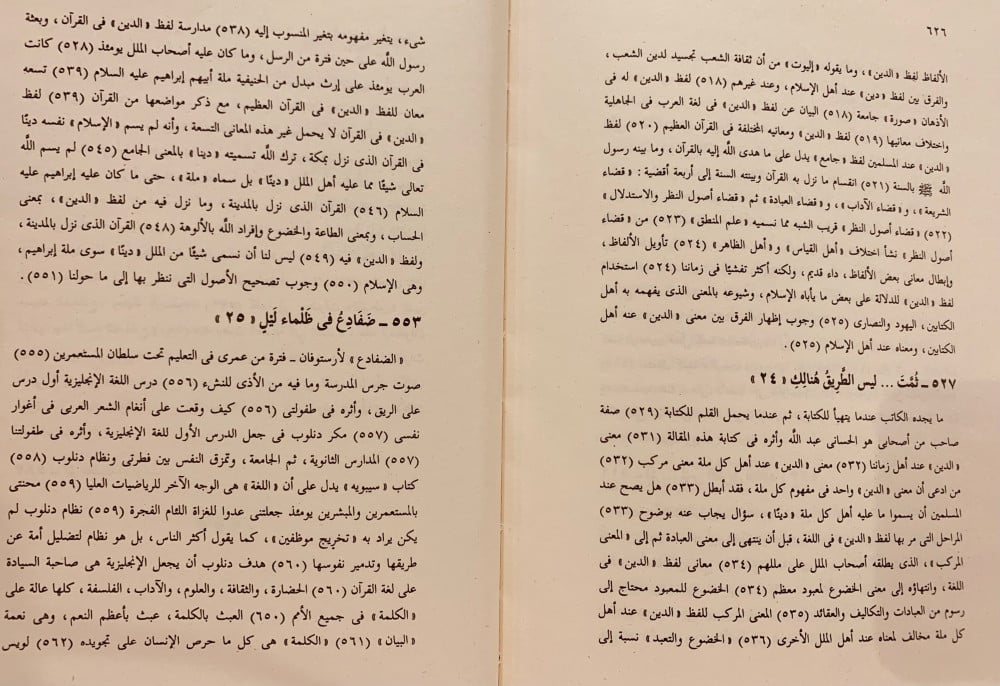 ٦٢٦
الألفاظ لفظ «الدين»، وما يقوله «إليوت» من أن ثقافة الشعب تجسيد لدين الشعب،
والفرق بين لفظ «دين» عند أهل الإسلام، وعند غيرهم (٥١٨) لفظ «الدين» له فى
الأذهان «صورة» جامعة (٥١٨) البيان عن لفظ «الدين» فى لغة العرب فى الجاهلية
واختلاف معانيها (٥١٩) لفظ «الدين» ومعانيه المختلفة فى القرآن العظيم (٥٢٠) لفظ
«الدين» عند المسلمين لفظ «جامع» يدل على ما هدى الله إليه بالقرآن، وما بينه رسول
الله ﷺ بالسنة (٥٢١) انقسام ما نزل به القرآن وبينته السنة إلى أربعة أقضية: «قضاء
الشريعة»، و«قضاء الآداب»، و«قضاء العبادة» ثم «قضاء أصول النظر والاستدلال»
(٥٢٢) «قضاء أصول النظر» قريب الشبه مما نسميه «علم المنطق» (٥٢٣) من «قضاء
أصول النظر» نشأ اختلاف «أهل القياس» و«أهل الظاهر» (٥٢٤) تأويل الألفاظ،
وإبطال معانى بعض الألفاظ، داء قديم، ولكنه أكثر تفشيًا فى زماننا (٥٢٤) استخدام
لفظ «الدين» للدلالة على بعض ما يأباه الإسلام، وشيوعه بالمعنى الذى يفهمه به أهل
الكتابين، اليهود والنصارى (٥٢٥) وجوب إظهار الفرق بين معنى «الدين» عنه أهل
الكتابين، ومعناه عند أهل الإسلام (٥٢٥).
٥٢٧ ـ ثُمَّتَ ... ليس الطَّرِيقُ هُنالِكِ «٢٤»
ما يجده الكاتب عندما يتهيأ للكتابة، ثم عندما يحمل القلم للكتابة (٥٢٩) صفة
صاحب من أصحابى هو الحسانى عبد الله وأثره فى كتابة هذه المقالة (٥٣١) معنى
«الدين» عند أهل زماننا (٥٣٢) معنى «الدين» عند أهل كل ملة معنى مركب (٥٣٢)
من ادعى أن معنى «الدين» واحد فى مفهوم كل ملة، فقد أبطل (٥٣٣) هل يصح عند
المسلمين أن يسموا ما عليه أهل كل ملة «دينًا»، سؤال يجاب عنه بوضوح (٥٣٣)
المراحل التى مر بها لفظ «الدين» فى اللغة، قبل أن ينتهى إلى معنى العبادة ثم إلى «المعنى
المركب»، الذى يطلقه أصحاب الملل على مللهم (٥٣٤) معانى لفظ «الدين» فى
اللغة، وانتهاؤه إلى معنى الخضوع لمعبود معظم (٥٣٤) الخضوع للمعبود محتاج إلى
رسوم من العبادات والتكاليف والعقائد (٥٣٥) المعنى المركب للفظ «الدين» عند أهل
كل ملة مخالف لمعناه عند أهل الملل الأخرى (٥٣٦) «الخضوع والتعبد» نسبة إلى
شىء، يتغير مفهومه بتغير المنسوب إليه (٥٣٨) مدارسة لفظ «الدين» فى القرآن، وبعثة
رسول الله على حين فترة من الرسل، وما كان عليه أصحاب الملل يومئذ (٥٢٨) كانت
العرب يومئذ على إرث مبدل من الحنيفية ملة أبيهم إبراهيم عليه السلام (٥٣٩) تسعه
معان للفظ «الدين» فى القرآن العظيم، مع ذكر مواضعها من القرآن (٥٣٩) لفظ
«الدين» فى القرآن لا يحمل غير هذه المعانى التسعة، وأنه لم يسم «الإسلام» نفسه دينًا
فى القرآن الذى نزل بمكة، ترك الله تسميته «دينا» بالمعنى الجامع (٥٤٥) لم يسم الله
تعالى شيئًا مما عليه أهل الملل «دينًا» بل سماه «ملة»، حتى ما كان عليه إبراهيم عليه
السلام (٥٤٦) القرآن الذى نزل بالمدينة، وما نزل فيه من لفظ «الدين»، بمعنى
الحساب، وبمعنى الطاعة والخضوع وإفراد الله بالألوهة (٥٤٨) القرآن الذى نزل بالمدينة،
ولفظ «الدين» فيه (٥٤٩) ليس لنا أن نسمى شيئًا من الملل «دينًا» سوى ملة إبراهيم،
وهى الإسلام (٥٥٠) وجوب تصحيح الأصول التى ننظر بها إلى ما حولنا (٥٥١).
٥٥٣ ـ ضَفَادِعُ فى ظَلْماء لَيْلٍ «٢٥»
«الضفادع» لأرستوفان ـ فترة من عمرى فى التعليم تحت سلطان المستعمرين (٥٥٥)
صوت جرس المدرسة وما فيه من الأذى للنشء (٥٥٦) درس اللغة الإنجليزية أول درس
على الريق، وأثره فى طفولتى (٥٥٦) كيف وقعت على أنغام الشعر العربى فى أغوار
نفسى (٥٥٧) مكر دنلوب فى جعل الدرس الأول للغة الإنجليزية، وأثره فى طفولتنا
(٥٥٧) المدارس الثانوية، ثم الجامعة، وتمزق النفس بين فطرتى ونظام دنلوب (٥٥٨)
كتاب «سيبويه» يدل على أن «اللغة» هى الوجه الآخر للرياضيات العليا (٥٥٩) محنتى
بالمستعمرين والمبشرين يومئذ جعلتنى عدوا للغزاة اللئام الفجرة (٥٥٩) نظام دنلوب لم
يكن يراد به «تخريج موظفين»، كما يقول أكثر الناس، بل هو نظام لتضليل أمة عن
طريقها وتدمير نفوسها (٥٦٠) هدف دنلوب أن يجعل الإنجليزية هى صاحبة السيادة
على لغة القرآن (٥٦٠) الحضارة، والثقافة، والعلوم، والآداب، الفلسفة، كلها عالة على
«الكلمة» فى جميع الأمم (٦٥٠) العبث بالكلمة، عبث بأعظم النعم، وهى نعمة
«البيان» (٥٦١) «الكلمة» هى كل ما حرص الإنسان على تجويده (٥٦٢) لويس